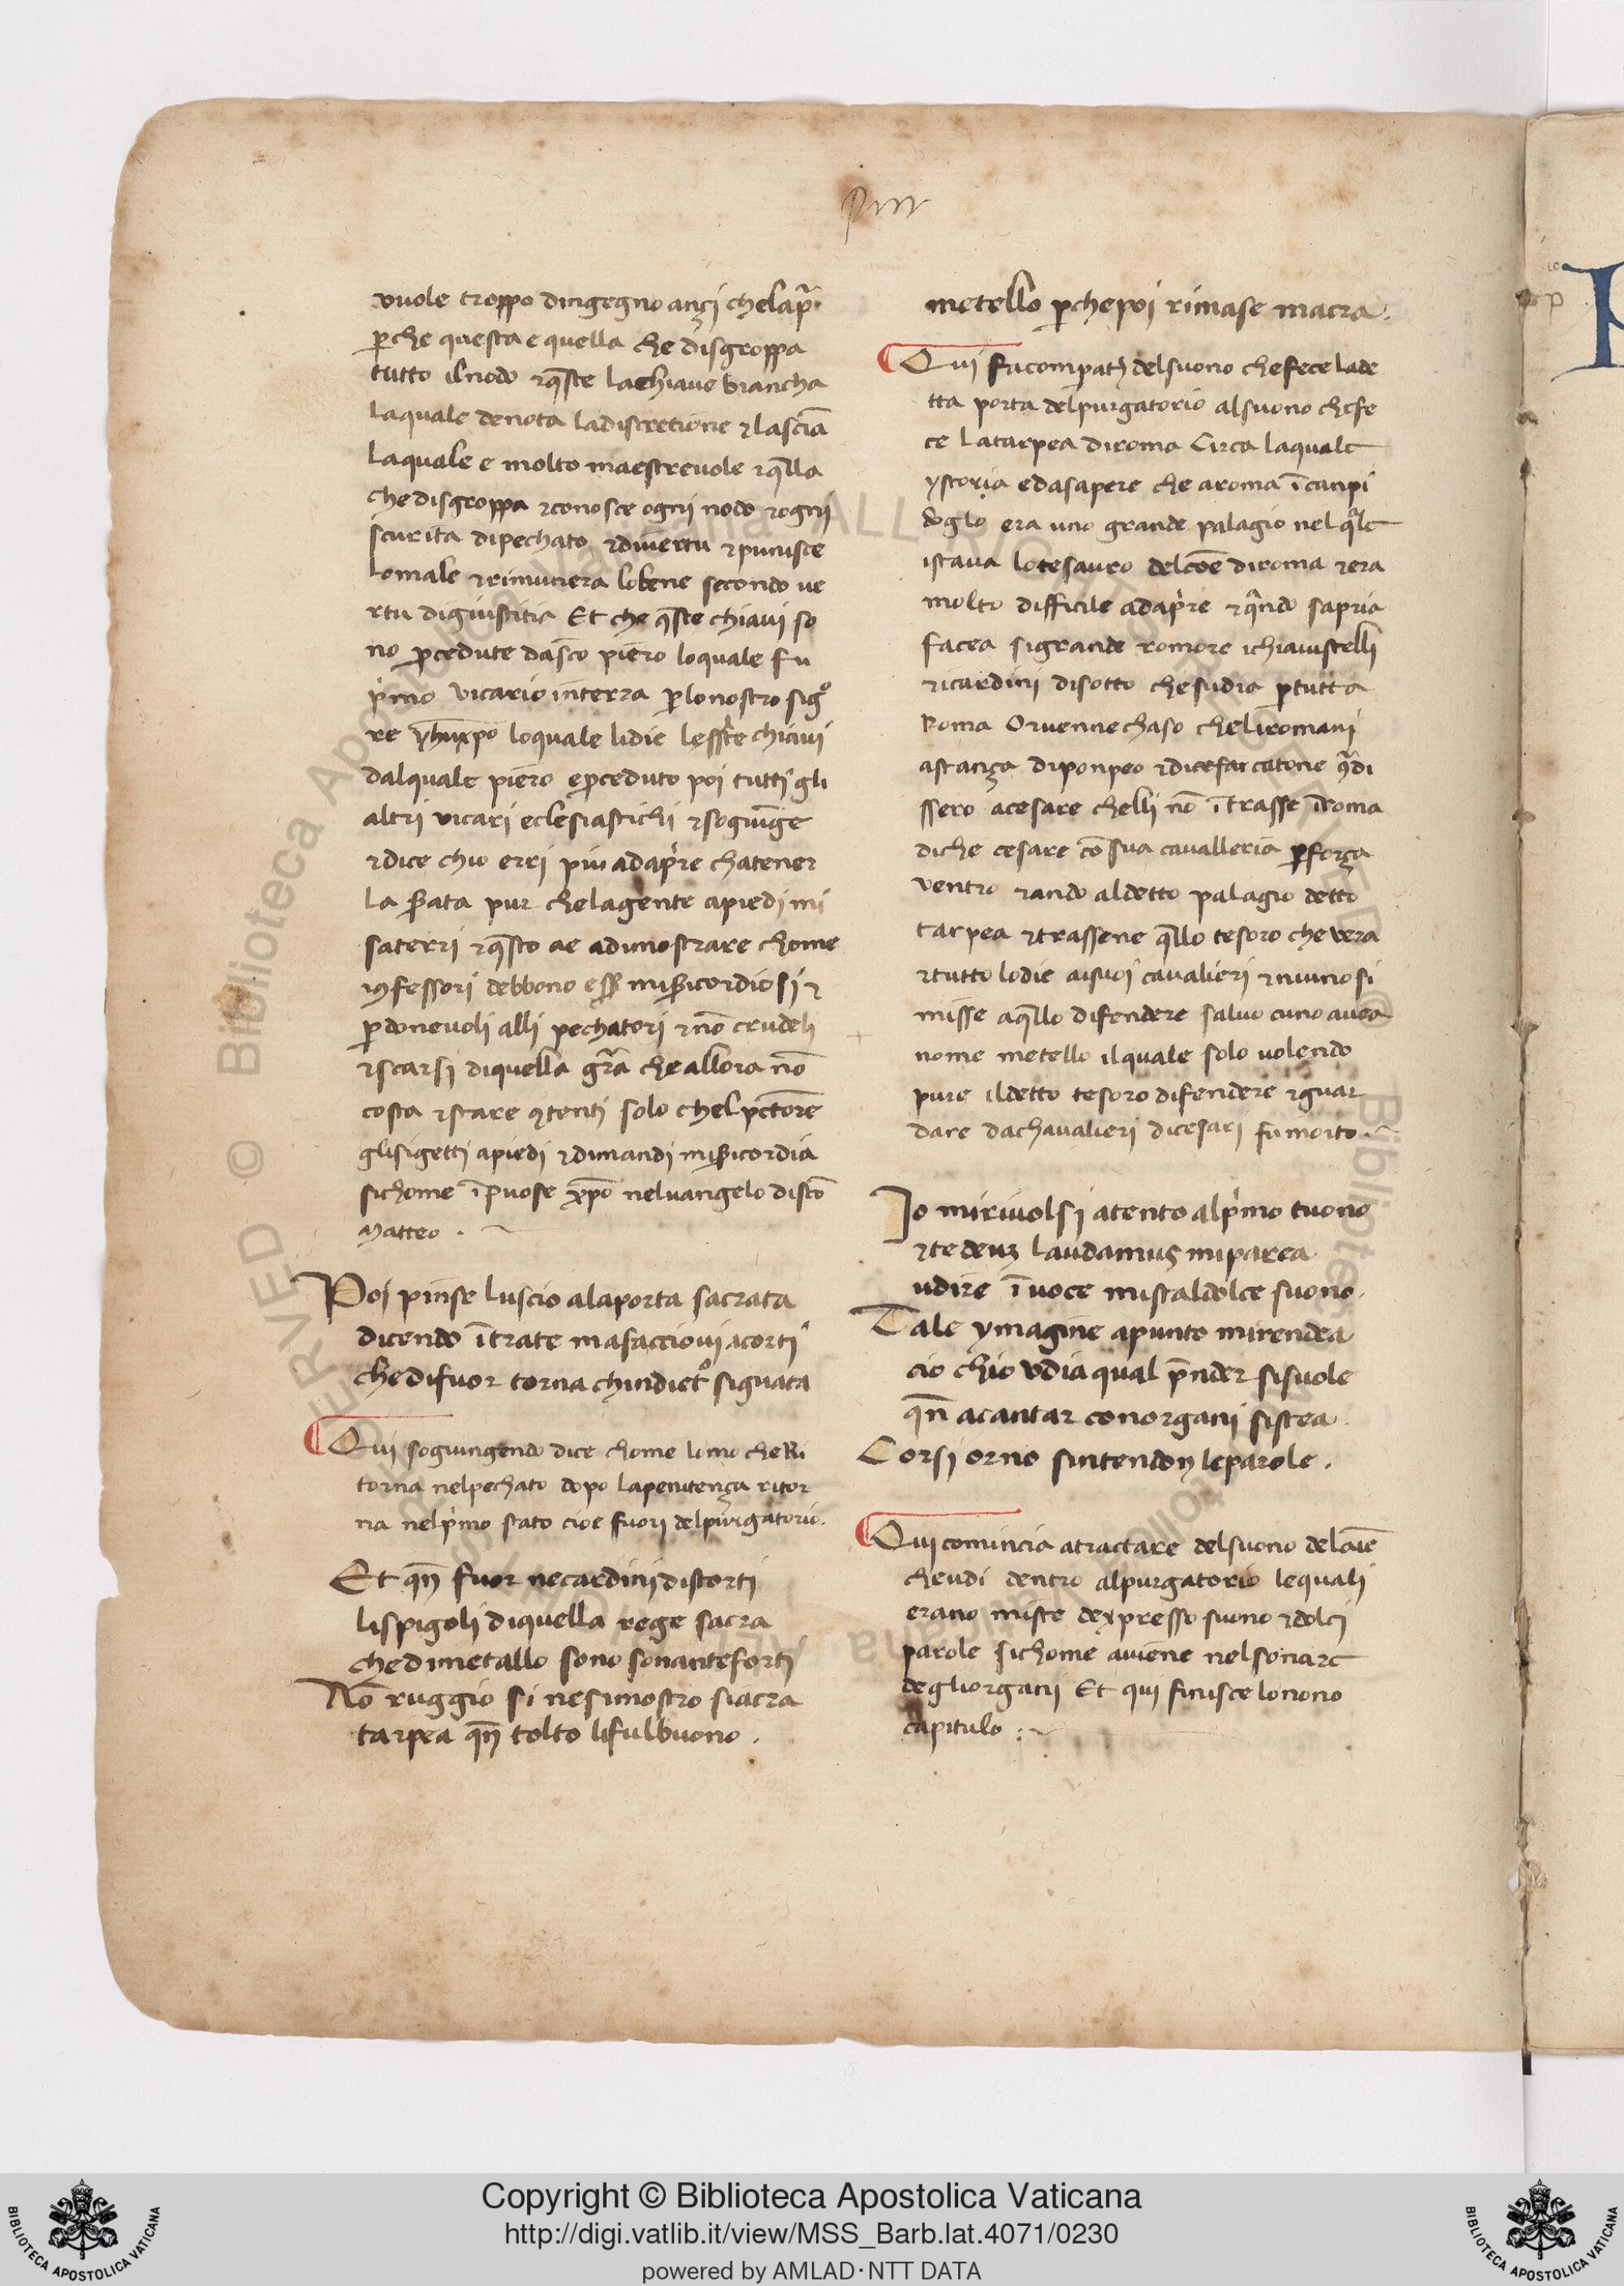 pur
vuole troppo dingegno anҫi chelapͣ.
ꝑche questa e quella che disgroppa
tutto ilnodo ⁊qͣste lachiaue biancha
laquale denota ladiscretione ⁊lasciā
laquale e molto maestreuole ⁊qͣlla
chedisgroppa ⁊conosce ogni nodo ⁊ogni
scurita dipechato ⁊diuertu ⁊punisce
lomale ⁊rimunera lobene secondo ue
rtu digiustitia Et che qͣste chiaui so
no ꝓcedute dasc̄o piero loquale fu
pͥmo vicario interra ꝑlonostro sigͦ
re yhuxp̄o loquale lidie le chiaui
dalquale piero eꝓceduto poi tutti gli
altri vicari eclesiastichi ⁊sogiūge
⁊dice chio erri piu adapͥre chatener
la s̄rata pur chelagente apiedi mi
saterri ⁊qͣsto ae adimostrare chome
ꝯfessori debbono eēr mis̄ricordiosi ⁊
ꝑdoneuoli alli pechatori ⁊nō crudeli
⁊scarsi diquella gr̄a cheallora nō
costa ⁊stare ꝯtenti solo chelpctore
glisigetti apiedi ⁊dimandi mis̄ricordia
sichome īpuose xp̄o neluangelo disc̄o
Matteo .
Poi pinse luscio alaporta sacrata
dicendo ītrate mafaccioui acorti
chedifuor torna chindietͦ siguata
Qui sogiungendo dice chome lomo cheRi
torna nelpechato dopo lapenitenҫa ritor
na nelpͥmo stato cioe fuori delpurgatorio.
Et qn̄ fuor necardini distorti
lispigoli diquella rege sacra
chedimetallo sono sonanteforti
Nō ruggio si nesimostro siacra
tarpea qn̄ tolto lifulbuono .
metello ꝑchepoi rimase macra.
Qui facomꝑatꝫ delsuono chefece lade
tta porta delpurgatorio alsuono chefe
ce latarpea diroma Circa laquale
ystoria edasapere che aroma īcanpi
doglo era uno grande palagio nel qͣle
istaua lotesauro delcōe diroma ⁊era
molto difficile adapͥre ⁊qͣndo sapria
facea sigrande romore ichiauistelli
⁊icardini disotto chesudia ꝑtutta
Roma Oruenne chaso cheliromani
astanҫa diponpeo ⁊dicefar catone qͣdi
ssero acesare chelli nō ītrasse īroma
diche cesare cō sua cavalleria ꝑforҫa
ventro ⁊ando aldetto palagio detto
tarpea ⁊trassene qͣllo tesoro che vera
⁊tutto lodie aisuoi cavalieri ⁊niuno si
misse aqͣllo difendere saluo cuno auea
nome metello ilquale solo uolendo
pure ildetto tesoro difendere ⁊guar
dare dachavalieri dicesari fumorto.
Io mirivolsi atento alpͥmo tuono
⁊te deuꝫ laudamus miparea
udire ī uoce mistaldolce suono.
Tale ymagine apunto mirendea
cio chio vdia qual p̄nder sisuole
qn̄ acantar conorgani sistea.
Corsi orno sintendoꝫ leparole .
Qui comincia atractare delsuono delaīe
cheudi dentro alpurgatorio lequali
erano miste dexpresso suono ⁊dolci
parole sichome auiene nelsonare
degliorgani Et qui finisce lonono
capitulo :
Copyright © Biblioteca Apostolica Vaticana
http://digi.vatlib.it/view/MSS_Barb.lat.4071/0230
powered by AMLAD·NTT DATA
BIBLIOTECA APOSTOLICA VATICANA
BIBLIOTECA APOSTOLICA VATICANA